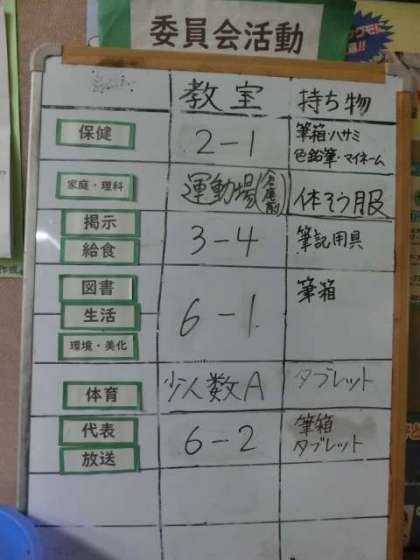 委員会活動
教室 持ち物
保健 2-1 筆箱・ハサミ
色鉛筆・マイネーム
家庭・理科 運動場(倉庫前) 体そう服
掲示
給食 3-4 筆記用具
図書
生活 6-1 筆箱
環境・美化
体育 少人数A タブレット
代表 6-2 筆箱
放送 タブレット